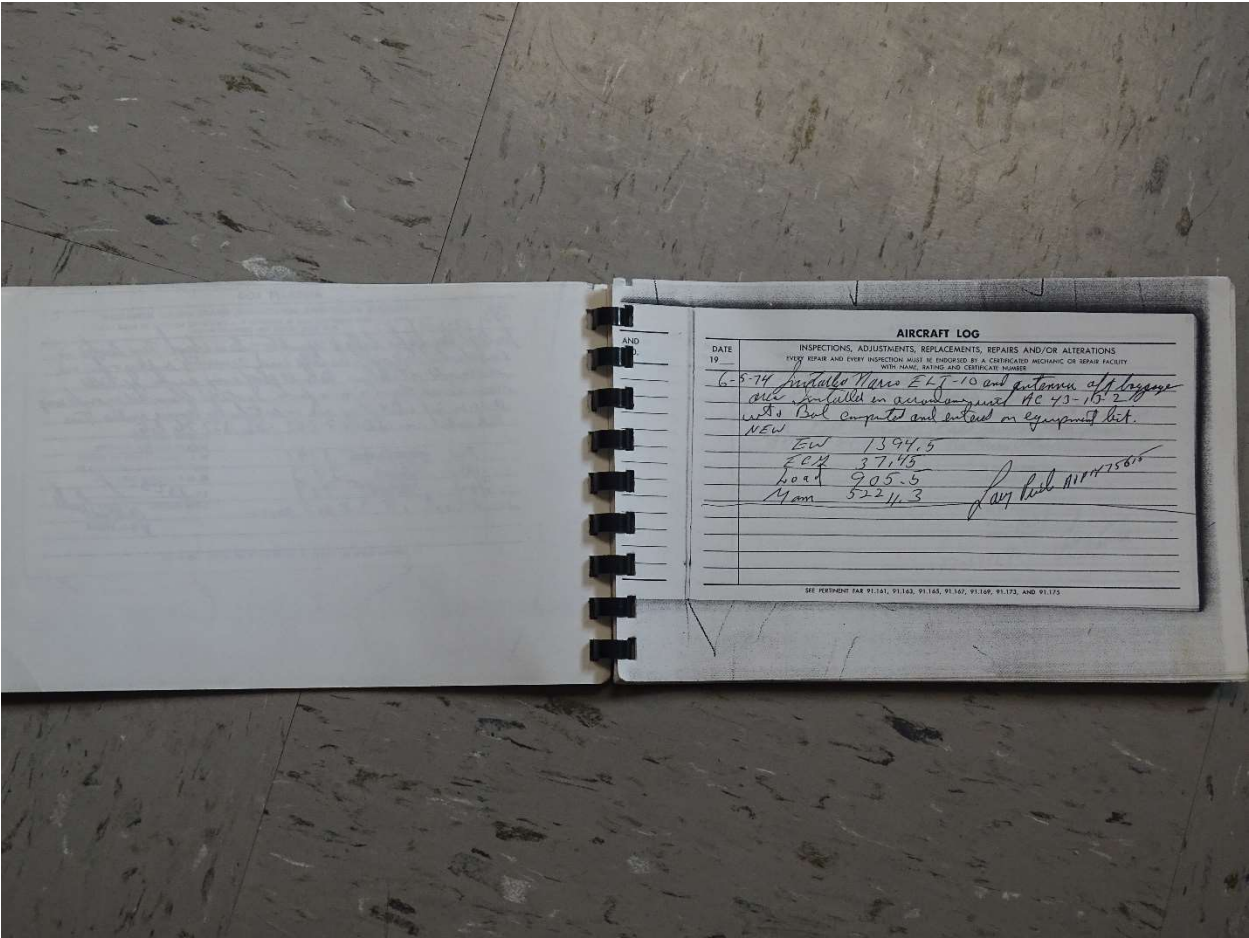 AND
O.
AIRCRAFT LOG
DATE
19
INSPECTIONS, ADJUSTMENTS, REPLACEMENTS, REPAIRS AND/OR ALTERATIONS
EVERY REPAIR AND EVERY INSPECTION MUST BE ENDORSED BY A CERTIFICATED MECHANIC OR REPAIR FACILITY
WITH NAME, RATING AND CERTIFICATE NUMBER
6-5-74 Installed Narco ELT-10 and antenna aft baggage
area Installed in AC 43-13-2
Bal computed and entered on equipment list.
NEW
EW 1394.5
37.45
Load 905.5
Mom
SEE PERTINENT FAR 91.161, 91.163, 91.165, 91.167, 91.169, 91.173, AND 91.175